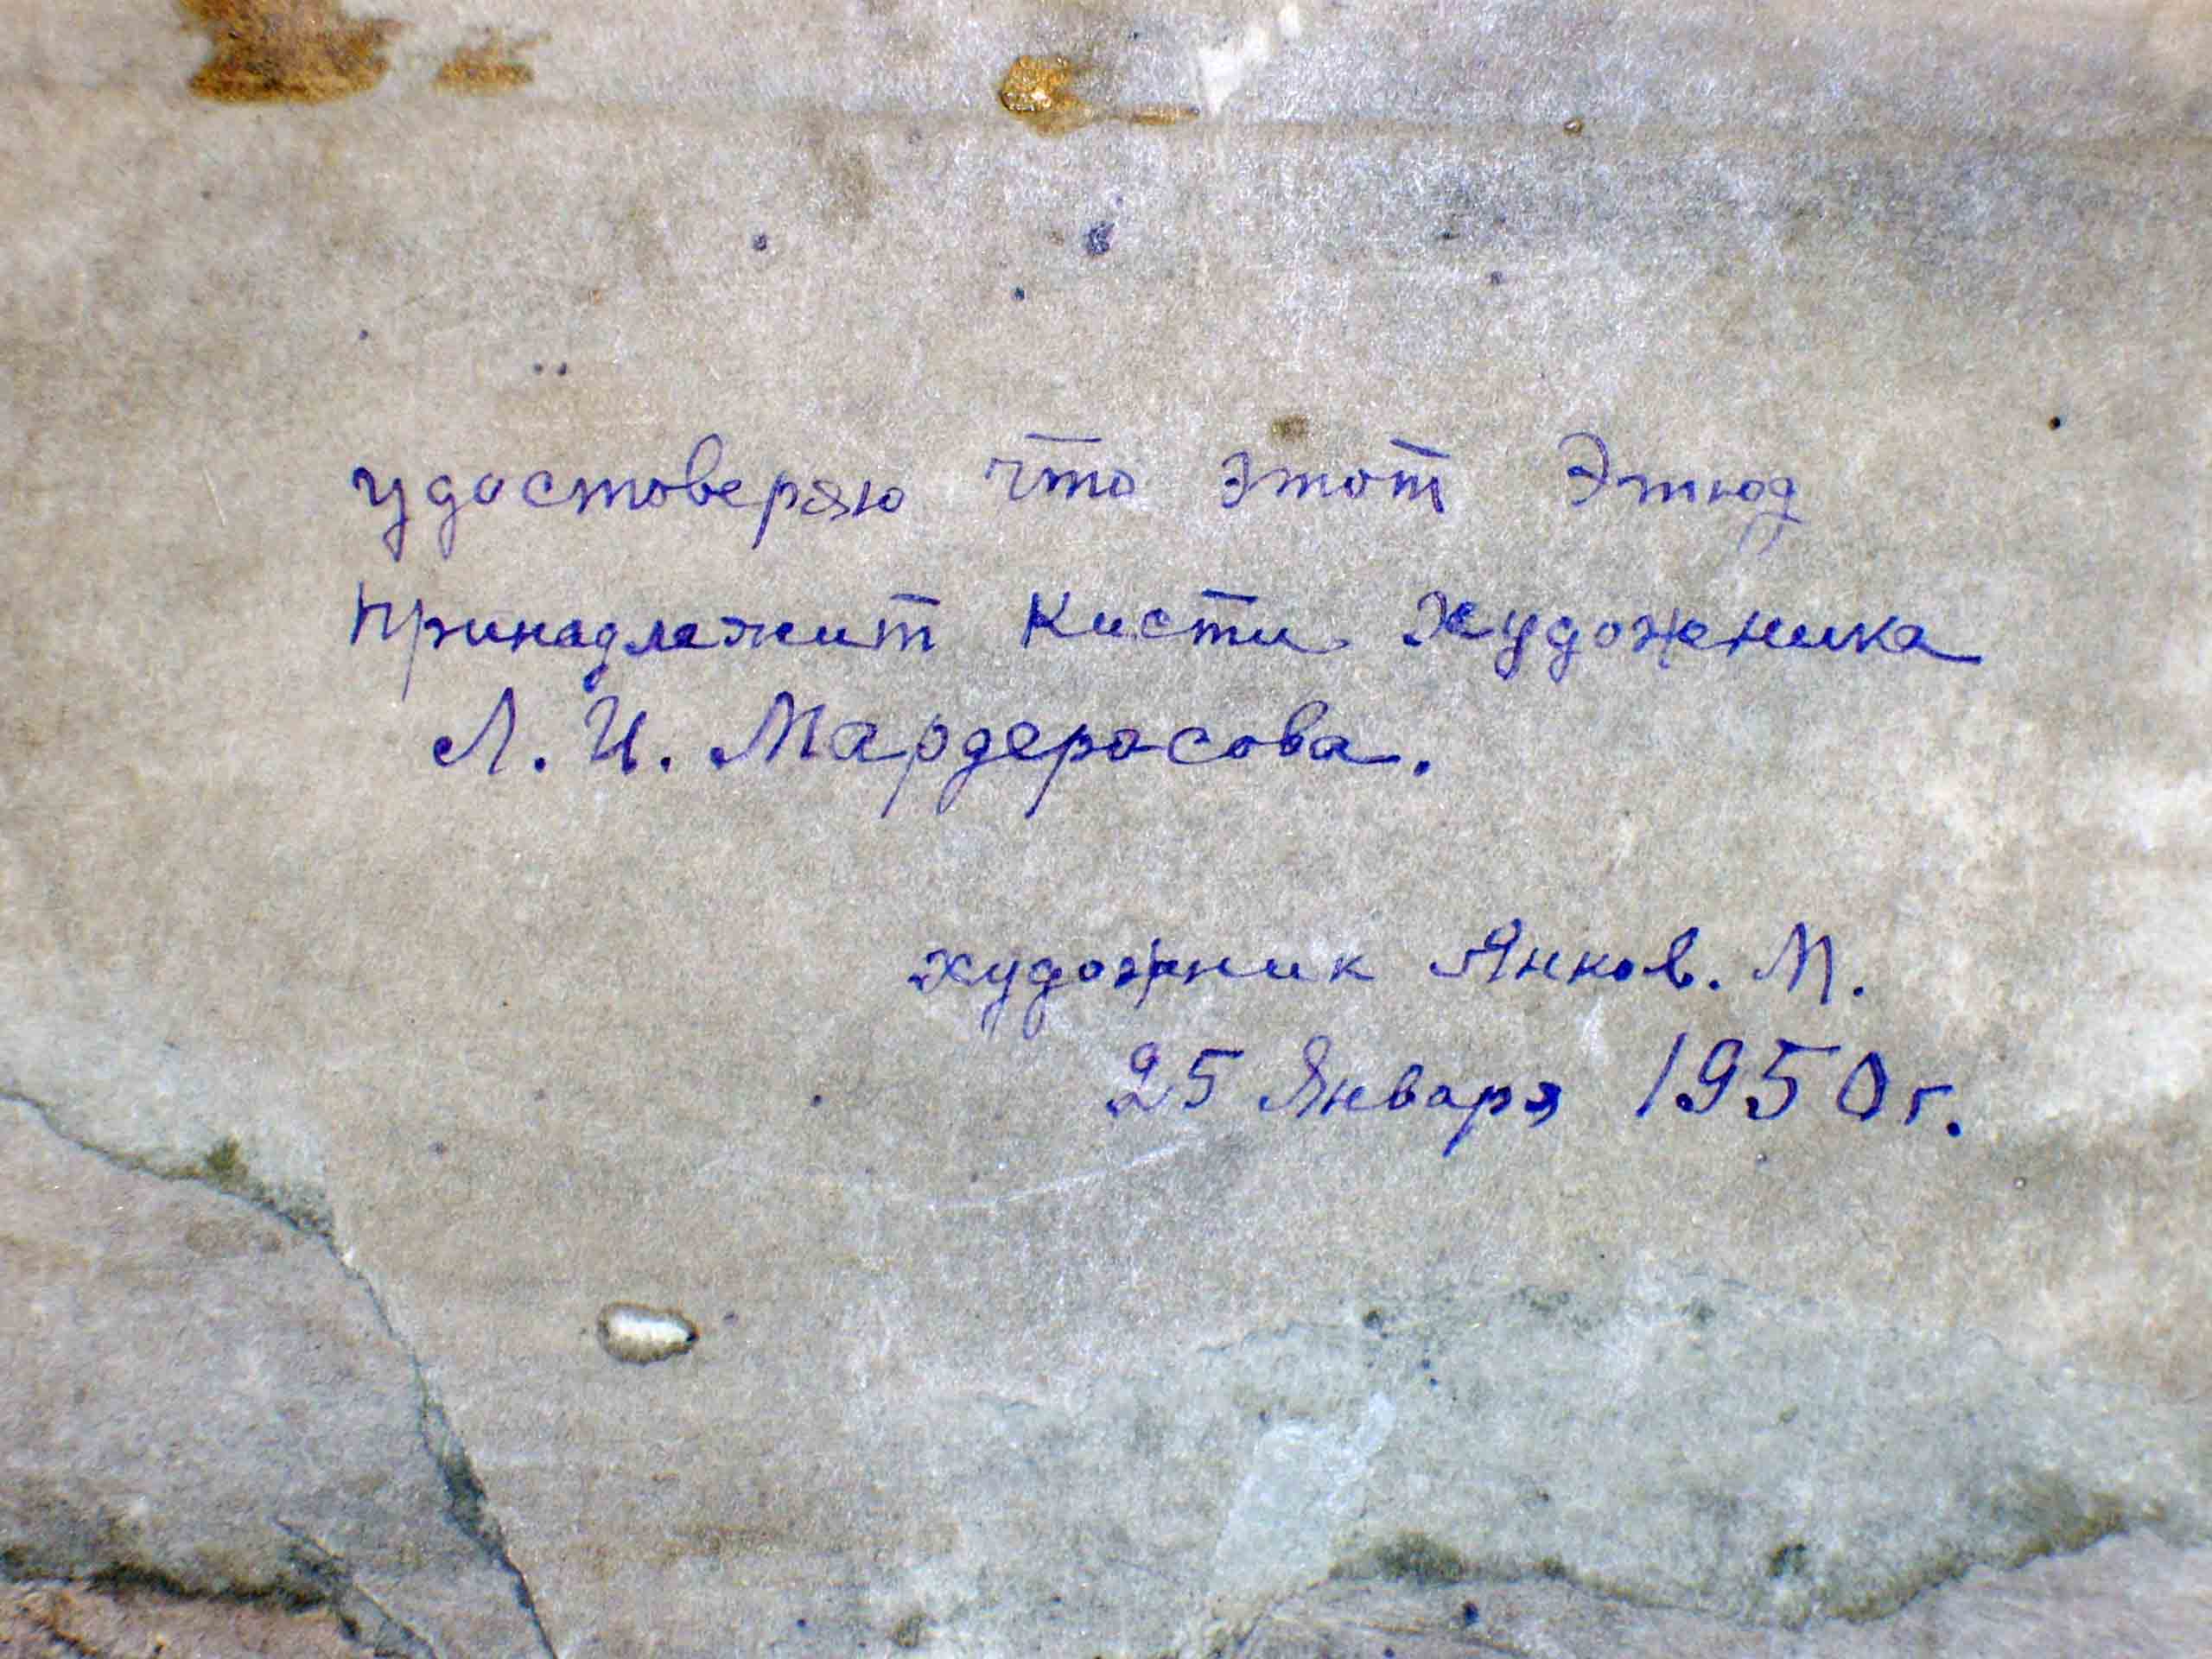 удостоверяю что этот Этюд
принадлежит Кисти художника
Л. И. Мардеросова.
художник Янков. М.
25 Января 1950 г.